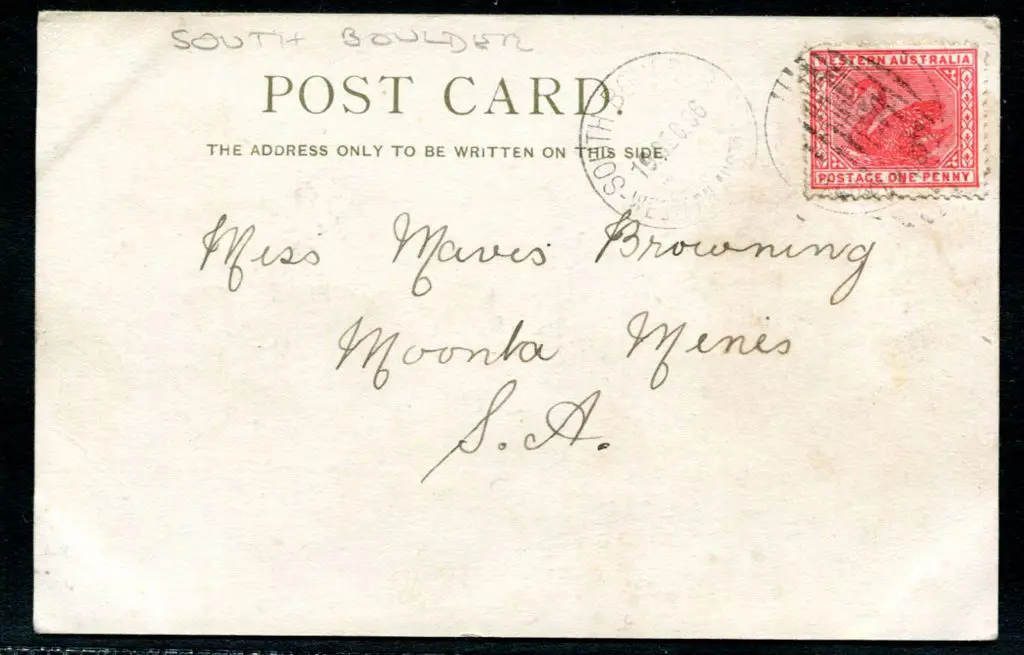 SOUTH BOULDER
POST CARD.
THE ADDRESS ONLY TO BE WRITTEN ON THIS SIDE.
WESTERN AUSTRALIA
POSTAGE ONE PENNY
Miss Mavis Browning
Moonta Mines
S. A.